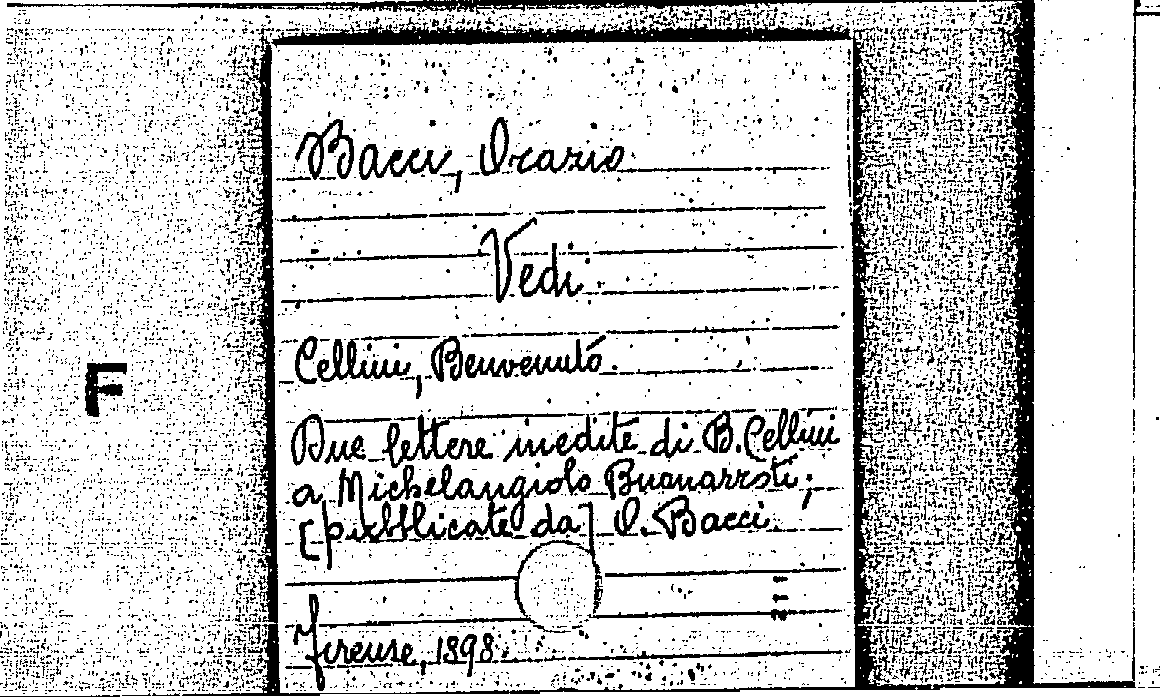 Bacci, Orazio
Vedi
Cellini, Benvenuto.
Due lettere inedite di B. Cellini
a Michelangiolo Buonarroti;
[pubblicate da] O. Bacci.
Firenze, 1898.